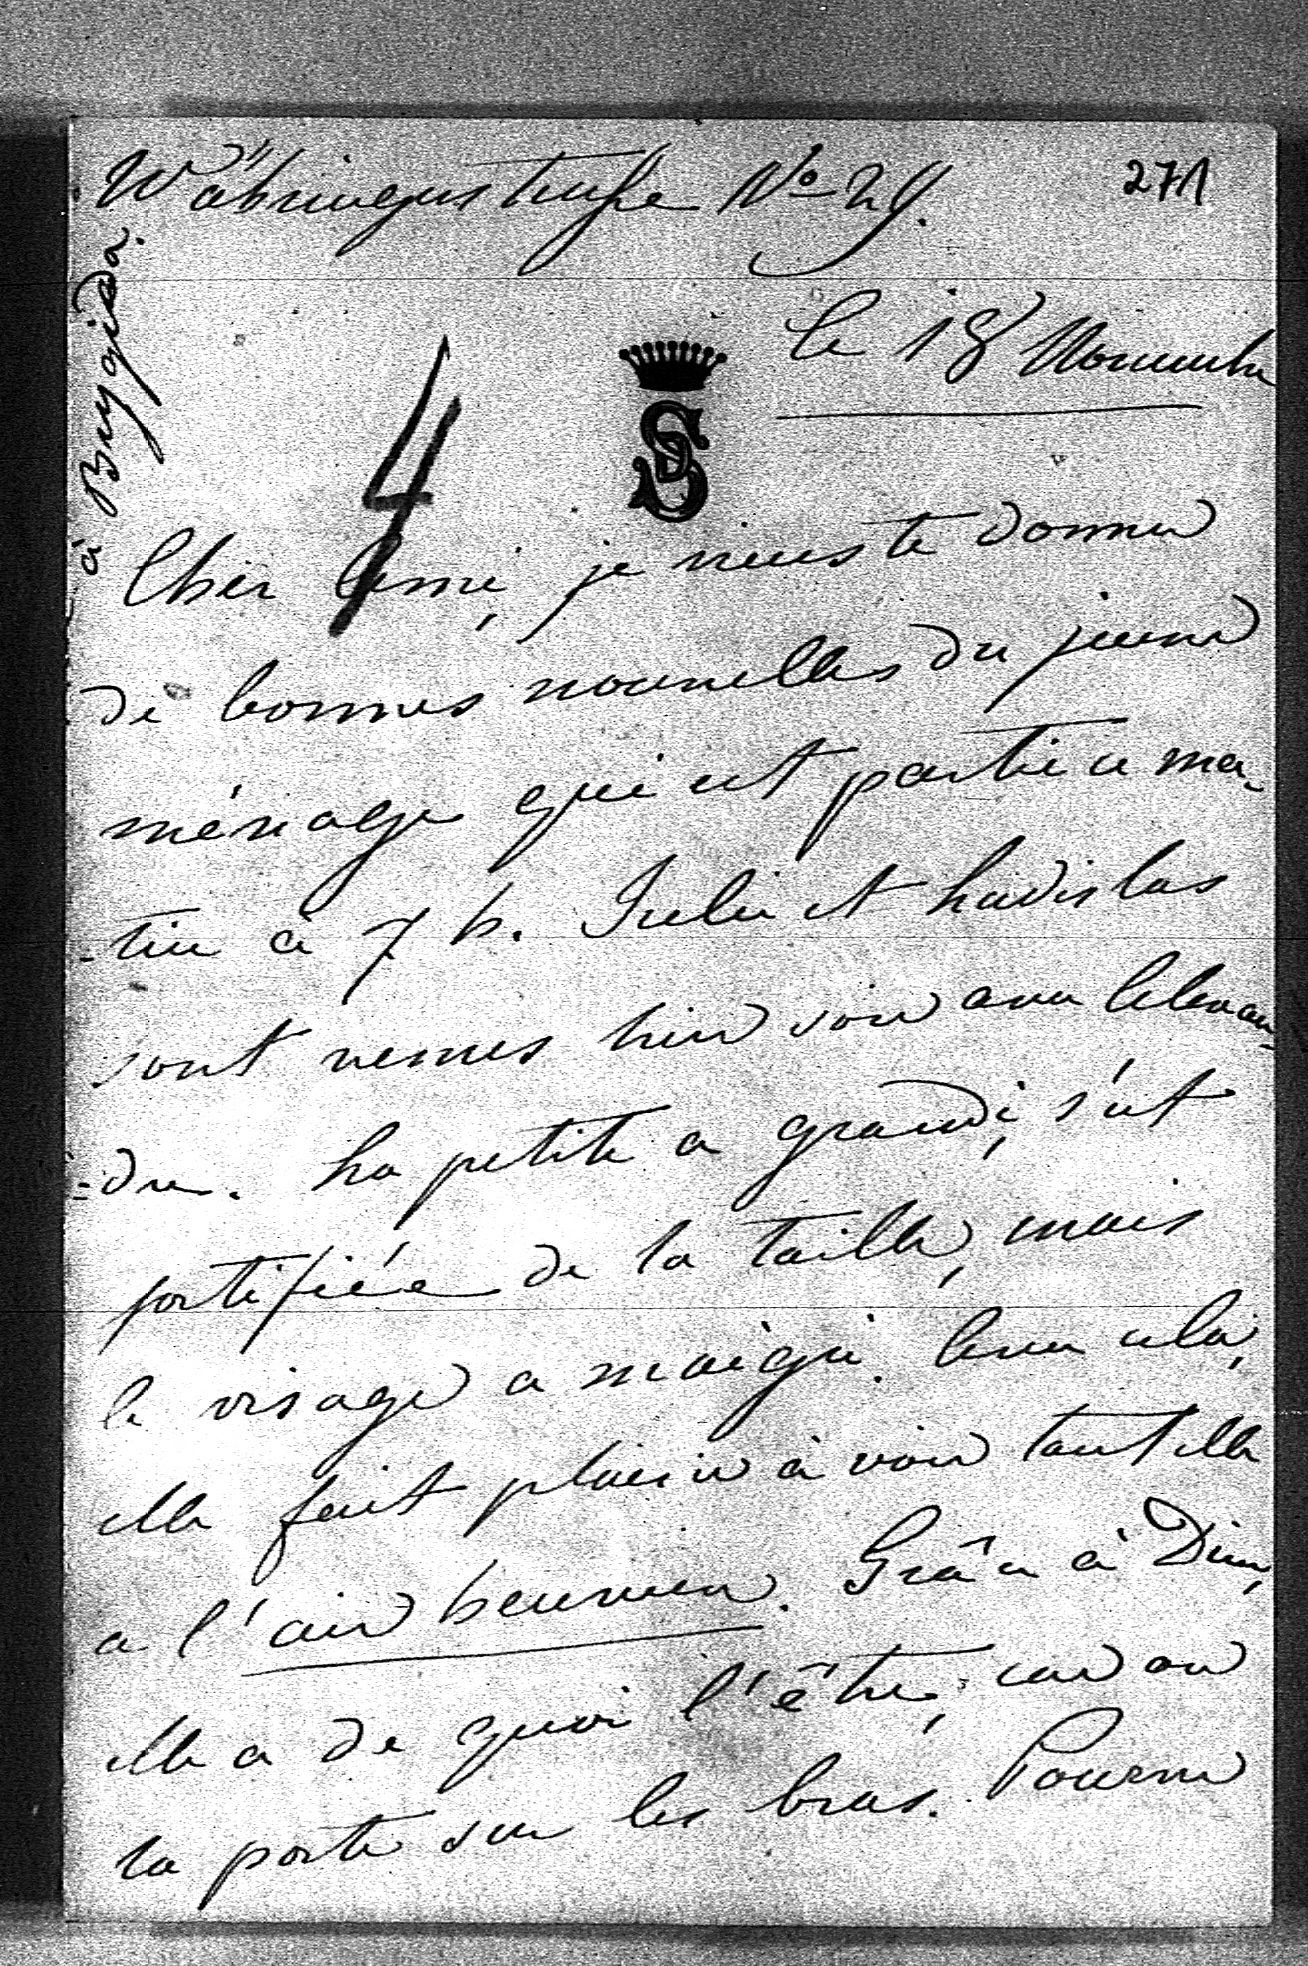 Währingerstrasse No 29.
271
à Brygida.
le 18 Novembre
4
SD
Cher Ami, je viens te donner
de bonnes nouvelles du jeune
ménage qui est partie ce ma-
-tin à 7 h. Julie et Ladislas
sont venus hier soir avec
-dre. La petite a grandi, s'est
fortifiée de la taille, mais
le visage a maigri. Avec cela,
elle fait plaisir à voir tant elle
a l'air heureux. Grâce à Dieu,
elle a de quoi l'être, car on
la porte sur les bras. Pauvre